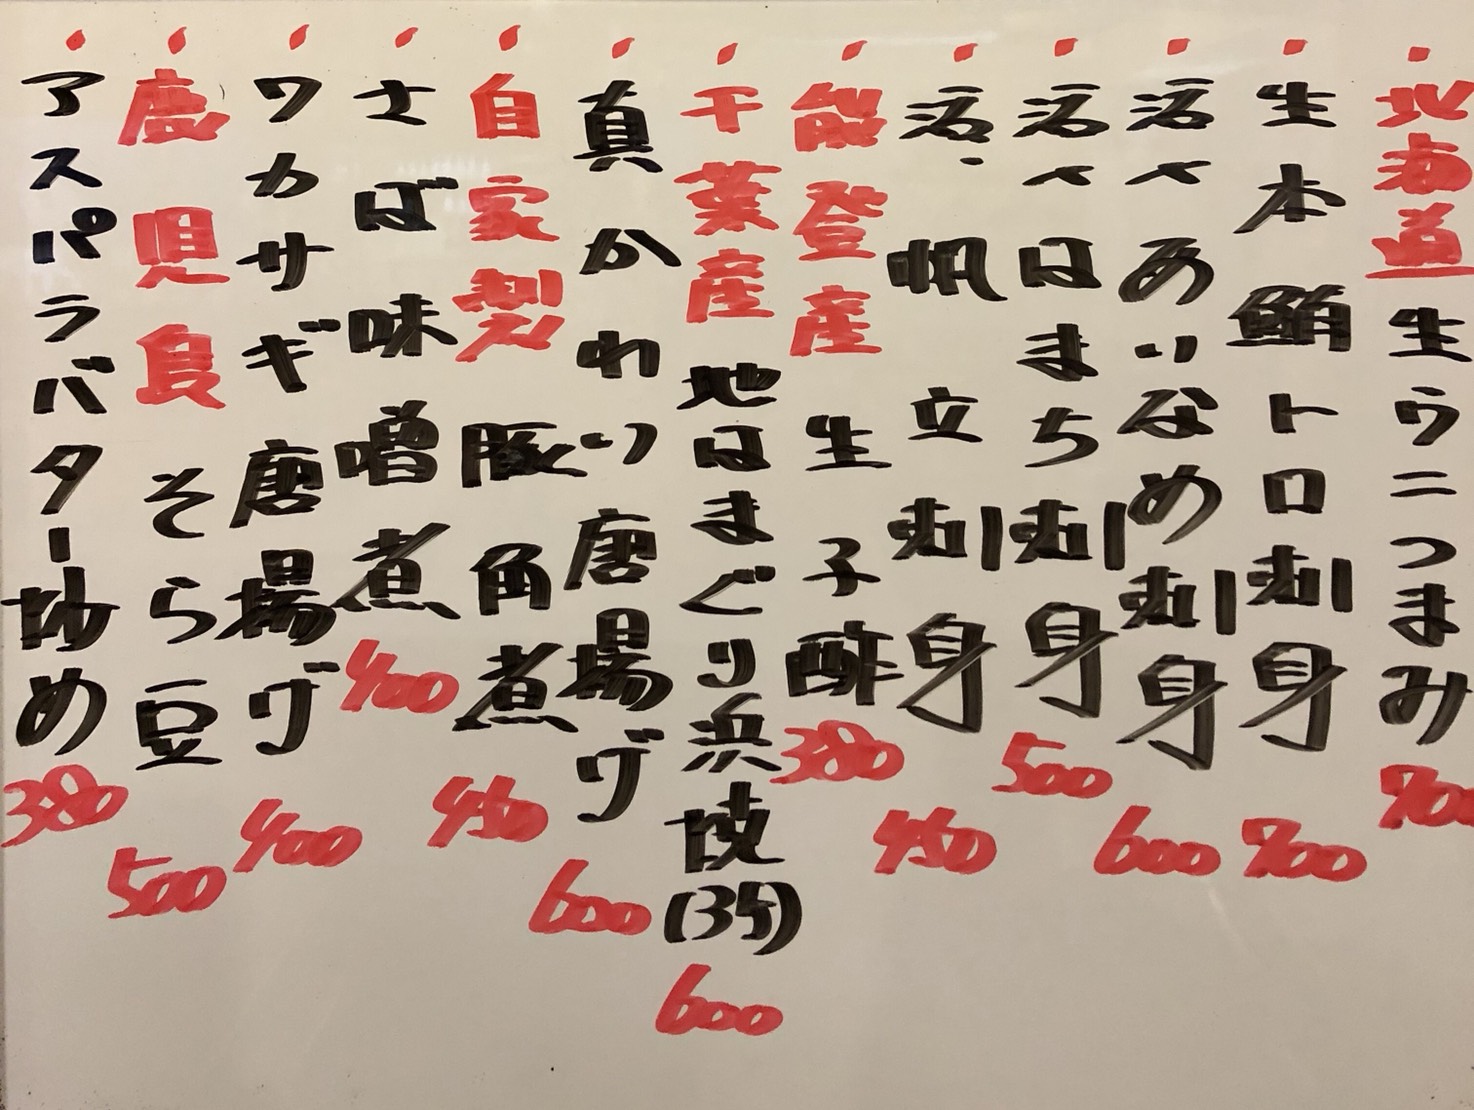 北海道生ウニつまみ 700
生本鮪トロ刺身 700
活〆あいなめ刺身 600
活〆はまち刺身 500
活〆帆立刺身 450
能登産生子酢 380
千葉産地はまぐり浜焼(3ケ) 600
真かわり唐揚げ 600
自家製豚角煮 450
さば味噌煮 400
ワカサギ唐揚げ 400
鹿児島そら豆 500
アスパラバター炒め 380